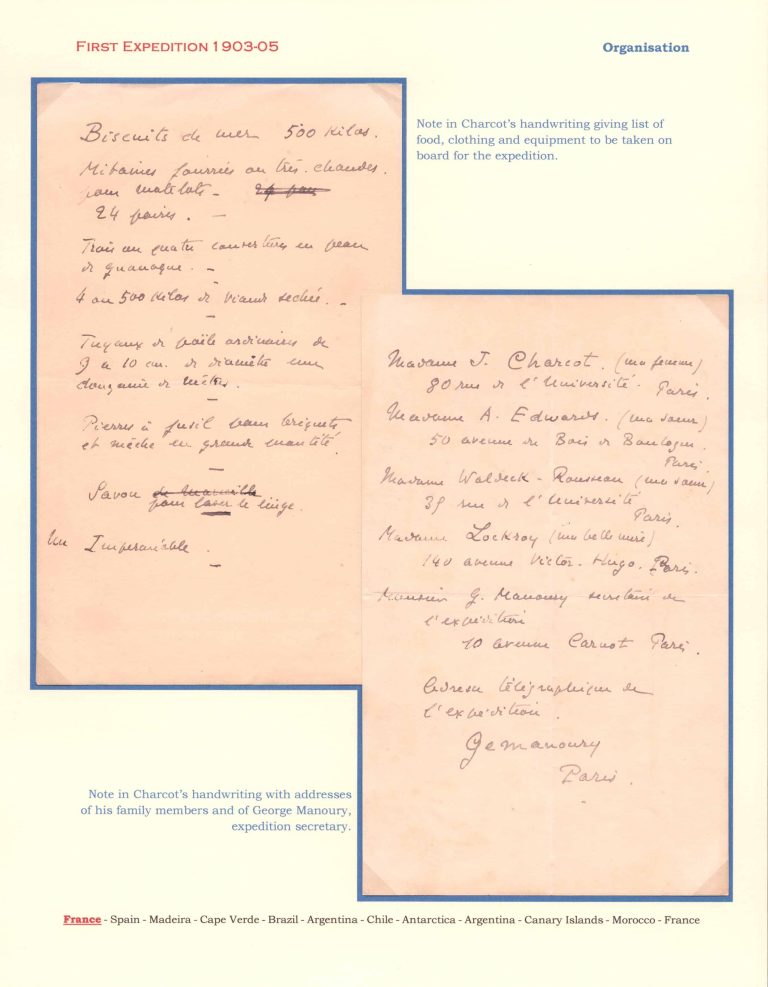 First Expedition 1903-05
Organisation
Biscuits de mer 500 Kilos.
Mitaines fourrées ou très chaudes.
pour matelots - 24 paires
24 paires. -
Trois ou quatre couvertures en peau
de guanaque. -
4 ou 500 Kilos de viande sechée. -
Tuyaux de poële ordinaires de
9 à 10 cm. de diamètre une
douzaine de mètres.
Pierres à fusil pour briquets
et mèche en grande quantité.
Savon de Marseille
pour laver le linge.
Un Imperméable.
Note in Charcot's handwriting giving list of
food, clothing and equipment to be taken on
board for the expedition.
Madame J. Charcot. (ma femme)
80 rue de l'Université. Paris.
Madame A. Edwards. (ma soeur)
50 avenue du Bois de Boulogne.
Paris.
Madame Waldeck-Rousseau (ma soeur)
35 rue de l'Université
Paris.
Madame Lockroy (ma belle mère)
140 avenue Victor-Hugo. Paris.
Monsieur G. Manoury secrétaire de
l'expédition
10 avenue Carnot Paris.
Adresse télégraphique de
l'expédition.
Gemanoury
Paris.
Note in Charcot's handwriting with addresses
of his family members and of George Manoury,
expedition secretary.
France - Spain - Madeira - Cape Verde - Brazil - Argentina - Chile - Antarctica - Argentina - Canary Islands - Morocco - France